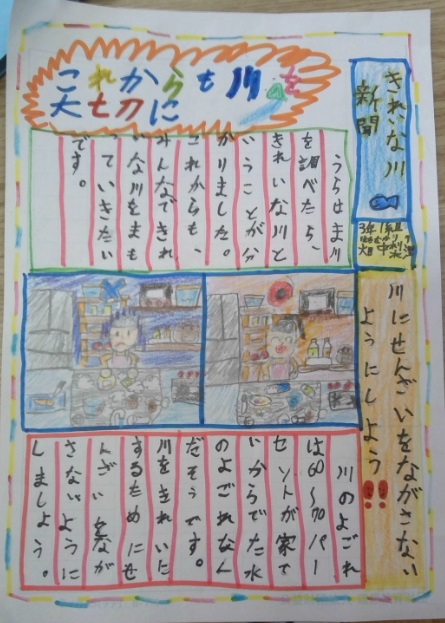 きれいな川
新聞
3年1組
川にせんざいをながさない
ようにしよう!!
これからも川を
大切に
うらはま川
を調べたら、
きれいな川と
いうことが分
かりました。
これからも、
みんなできれ
いな川をまも
っていきたい
です。
川のよごれ
は60〜70パー
セントが家て
いからでた水
のよごれなん
だそうです。
川をきれいに
するためにせ
んざいをなが
さないように
しましょう。